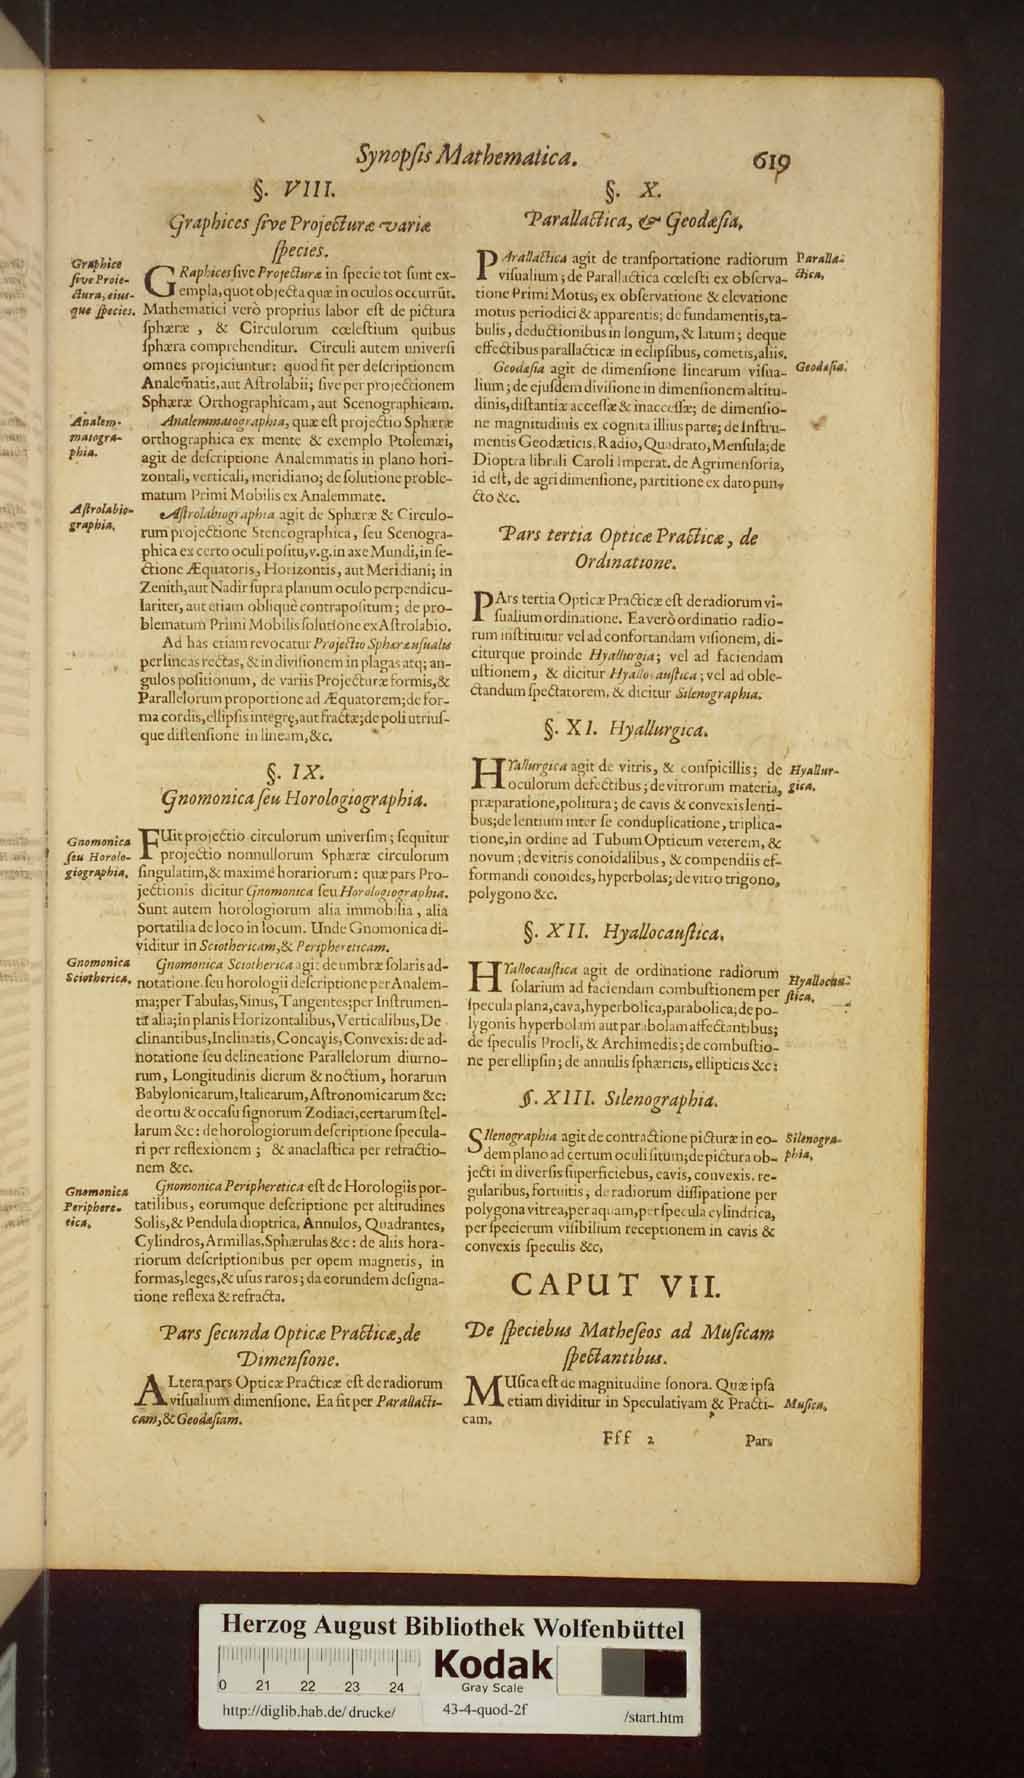 Synopſis Mathematica. 619
§. VIII.
Graphices ſive Projecturæ variæ
ſpecies.
Graphice
ſive Proie-
ctura, eiuſ-
que ſpecies.
GRaphices ſive Projecturæ in ſpecie tot ſunt ex-
empla, quot objecta quæ in oculos occurrūt.
Mathematici verò proprius labor eſt de pictura
ſphæræ, & Circulorum cœleſtium quibus
ſphæra comprehenditur. Circuli autem univerſi
omnes projiciuntur: quod fit per deſcriptionem
Analem̃atis, aut Aſtrolabii; ſive per projectionem
Sphæræ Orthographicam, aut Scenographicam.
Analem-
matogra-
phia.
Analemmatographia, quæ eſt projectio Sphæræ
orthographica ex mente & exemplo Ptolemæi,
agit de deſcriptione Analemmatis in plano hori-
zontali, verticali, meridiano; de ſolutione proble-
matum Primi Mobilis ex Analemmate.
Aſtrolabio-
graphia.
Aſtrolabiographia agit de Sphæræ & Circulo-
rum projectione Stereographica, ſeu Scenogra-
phica ex certo oculi poſitu, v.g. in axe Mundi, in ſe-
ctione Æquatoris, Horizontis, aut Meridiani; in
Zenith, aut Nadir ſupra planum oculo perpendicu-
lariter, aut etiam obliquè contrapoſitum; de pro-
blematum Primi Mobilis ſolutione ex Aſtrolabio.
Ad has etiam revocatur Projectio Sphæræ uſualis
per lineas rectas, & in diviſionem in plagas atq; an-
gulos poſitionum, de variis Projecturæ formis, &
Parallelorum proportione ad Æquatorem; de for-
ma cordis, ellipſis integrę, aut fractæ; de poli utriuſ-
que diſtenſione in lineam, &c.
§. IX.
Gnomonica ſeu Horologiographia.
Gnomonica
ſeu Horolo-
giographia.
FUit projectio circulorum univerſim; ſequitur
projectio nonnullorum Sphæræ circulorum
ſingulatim, & maximè horariorum: quæ pars Pro-
jectionis dicitur Gnomonica ſeu Horologiographia.
Sunt autem horologiorum alia immobilia, alia
portatilia de loco in locum. Unde Gnomonica di-
viditur in Sciothericam, & Periphereticam.
Gnomonica
Sciotherica.
Gnomonica Sciotherica agit de umbræ ſolaris ad-
notatione. ſeu horologii deſcriptione per Analem-
ma; per Tabulas, Sinus, Tangentes; per Inſtrumen-
ta alia; in planis Horizontalibus, Verticalibus, De
clinantibus, Inclinatis, Concavis, Convexis: de ad-
notatione ſeu delineatione Parallelorum diurno-
rum, Longitudinis dierum & noctium, horarum
Babylonicarum, Italicarum, Aſtronomicarum &c:
de ortu & occaſu ſignorum Zodiaci, certarum ſtel-
larum &c: de horologiorum deſcriptione ſpecula-
ri per reflexionem; & anaclaſtica per refractio-
nem &c.
Gnomonica
Periphere-
tica.
Gnomonica Peripheretica eſt de Horologiis por-
tatilibus, eorumque deſcriptione per altitudines
Solis, & Pendula dioptrica, Annulos, Quadrantes,
Cylindros, Armillas, Sphærulas &c: de aliis hora-
riorum deſcriptionibus per opem magnetis, in
formas, leges, & uſus raros; da eorundem deſigna-
tione reflexa & refracta.
Pars ſecunda Opticæ Practicæ, de
Dimenſione.
ALtera pars Opticæ Practicæ eſt de radiorum
viſualium dimenſione. Ea fit per Parallacti-
cam, & Geodæſiam.
§. X.
Parallactica, & Geodæſia.
PArallactica agit de tranſportatione radiorum
viſualium; de Parallactica cœleſti ex obſerva-
tione Primi Motus, ex obſervatione & elevatione
motus periodici & apparentis; de fundamentis, ta-
bulis, deductionibus in longum, & latum; deque
effectibus parallacticæ in eclipſibus, cometis, aliis.
Paralla-
ctica.
Geodæſia agit de dimenſione linearum viſua-
lium; de ejuſdem diviſione in dimenſionem altitu-
dinis, diſtantiæ acceſſæ & inacceſſæ; de dimenſio-
ne magnitudinis ex cognita illius parte; de Inſtru-
mentis Geodæticis, Radio, Quadrato, Menſula; de
Dioptra librali Caroli Imperat. de Agrimenſoria,
id eſt, de agri dimenſione, partitione ex dato pun-
cto &c.
Geodæſia.
Pars tertia Opticæ Practicæ, de
Ordinatione.
PArs tertia Opticæ Practicæ eſt de radiorum vi-
ſualium ordinatione. Ea verò ordinatio radio-
rum inſtituitur vel ad confortandam viſionem, di-
citurque proinde Hyallurgia; vel ad faciendam
uſtionem, & dicitur Hyallocauſtica; vel ad oble-
ctandum ſpectatorem, & dicitur Silenographia.
§. XI. Hyallurgica.
HYallurgica agit de vitris, & conſpicillis; de
oculorum defectibus; de vitrorum materia,
præparatione, politura; de cavis & convexis lenti-
bus; de lentium inter ſe conduplicatione, triplica-
tione, in ordine ad Tubum Opticum veterem, &
novum; de vitris conoidalibus, & compendiis ef-
formandi conoides, hyperbolas; de vitro trigono,
polygono &c.
Hyallur-
gica.
§. XII. Hyallocauſtica.
HYallocauſtica agit de ordinatione radiorum
ſolarium ad faciendam combuſtionem per
ſpecula plana, cava, hyperbolica, parabolica; de po-
lygonis hyperbolam aut parabolam affectantibus;
de ſpeculis Procli, & Archimedis; de combuſtio-
ne per ellipſin; de annulis ſphæricis, ellipticis &c:
Hyallocau-
ſtica.
§. XIII. Silenographia.
SIlenographia agit de contractione picturæ in eo-
dem plano ad certum oculi ſitum; de pictura ob-
jecti in diverſis ſuperficiebus, cavis, convexis, re-
gularibus, fortuitis, de radiorum diſſipatione per
polygona vitrea, per aquam, per ſpecula cylindrica,
per ſpecierum viſibilium receptionem in cavis &
convexis ſpeculis &c.
Silenogra-
phia.
CAPUT VII.
De ſpeciebus Matheſeos ad Muſicam
ſpectantibus.
MUſica eſt de magnitudine ſonora. Quæ ipſa
etiam dividitur in Speculativam & Practi-
cam.
Muſica.
Fff 2 Pars
Herzog August Bibliothek Wolfenbüttel
0 21 22 23 24
Kodak
Gray Scale
http://diglib.hab.de/drucke/ 43-4-quod-2f /start.htm